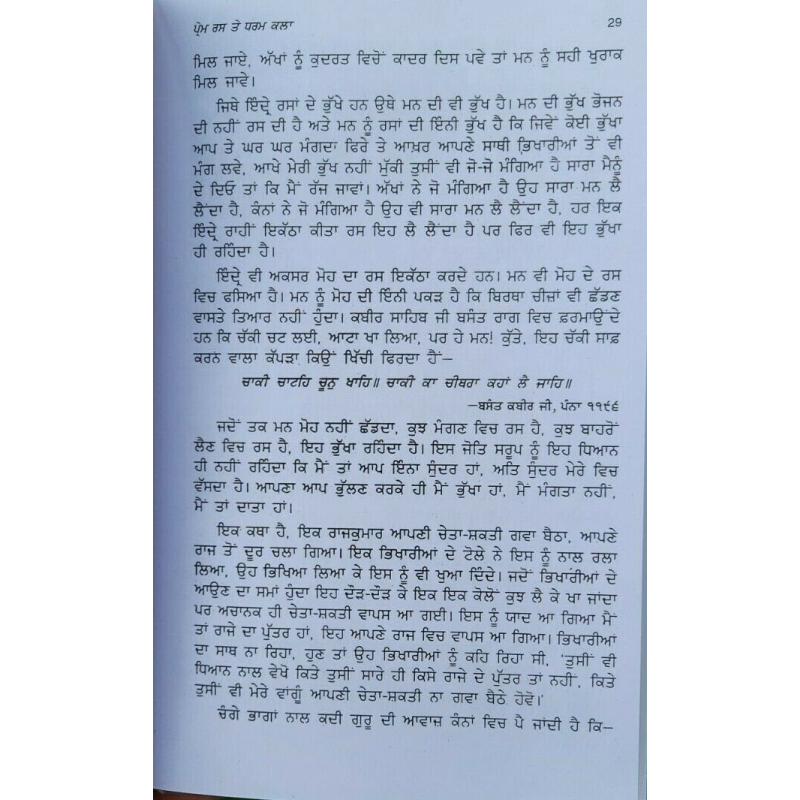 ਪ੍ਰੇਮ ਰਸ ਤੇ ਧਰਮ ਕਲਾ 29
ਮਿਲ ਜਾਏ, ਅੱਖਾਂ ਨੂੰ ਕੁਦਰਤ ਵਿਚੋਂ ਕਾਦਰ ਦਿਸ ਪਵੇ ਤਾਂ ਮਨ ਨੂੰ ਸਹੀ ਖੁਰਾਕ
ਮਿਲ ਜਾਵੇ।
ਜਿਥੇ ਇੰਦ੍ਰੇ ਰਸਾਂ ਦੇ ਭੁੱਖੇ ਹਨ ਉਥੇ ਮਨ ਦੀ ਵੀ ਭੁੱਖ ਹੈ। ਮਨ ਦੀ ਭੁੱਖ ਭੋਜਨ
ਦੀ ਨਹੀਂ ਰਸ ਦੀ ਹੈ ਅਤੇ ਮਨ ਨੂੰ ਰਸਾਂ ਦੀ ਇੰਨੀ ਭੁੱਖ ਹੈ ਕਿ ਜਿਵੇਂ ਕੋਈ ਭੁੱਖਾ
ਆਪ ਤੇ ਘਰ ਘਰ ਮੰਗਦਾ ਫਿਰੇ ਤੇ ਆਖ਼ਰ ਆਪਣੇ ਸਾਥੀ ਭਿਖਾਰੀਆਂ ਤੋਂ ਵੀ
ਮੰਗ ਲਵੇ, ਆਖੇ ਮੇਰੀ ਭੁੱਖ ਨਹੀਂ ਮੁੱਕੀ ਤੁਸੀਂ ਵੀ ਜੋ-ਜੋ ਮੰਗਿਆ ਹੈ ਸਾਰਾ ਮੈਨੂੰ
ਦੇ ਦਿਓ ਤਾਂ ਕਿ ਮੈਂ ਰੱਜ ਜਾਵਾਂ। ਅੱਖਾਂ ਨੇ ਜੋ ਮੰਗਿਆ ਹੈ ਉਹ ਸਾਰਾ ਮਨ ਲੈ
ਲੈਂਦਾ ਹੈ, ਕੰਨਾਂ ਨੇ ਜੋ ਮੰਗਿਆ ਹੈ ਉਹ ਵੀ ਸਾਰਾ ਮਨ ਲੈ ਲੈਂਦਾ ਹੈ, ਹਰ ਇਕ
ਇੰਦ੍ਰੇ ਰਾਹੀਂ ਇਕੱਠਾ ਕੀਤਾ ਰਸ ਇਹ ਲੈ ਲੈਂਦਾ ਹੈ ਪਰ ਫਿਰ ਵੀ ਇਹ ਭੁੱਖਾ
ਹੀ ਰਹਿੰਦਾ ਹੈ।
ਇੰਦ੍ਰੇ ਵੀ ਅਕਸਰ ਮੋਹ ਦਾ ਰਸ ਇਕੱਠਾ ਕਰਦੇ ਹਨ। ਮਨ ਵੀ ਮੋਹ ਦੇ ਰਸ
ਵਿਚ ਫਸਿਆ ਹੈ। ਮਨ ਨੂੰ ਮੋਹ ਦੀ ਇੰਨੀ ਪਕੜ ਹੈ ਕਿ ਬਿਰਥਾ ਚੀਜ਼ਾਂ ਵੀ ਛੱਡਣ
ਵਾਸਤੇ ਤਿਆਰ ਨਹੀਂ ਹੁੰਦਾ। ਕਬੀਰ ਸਾਹਿਬ ਜੀ ਬਸੰਤ ਰਾਗ ਵਿਚ ਫ਼ਰਮਾਉਂਦੇ
ਹਨ ਕਿ ਚੱਕੀ ਚਟ ਲਈ, ਆਟਾ ਖਾ ਲਿਆ, ਪਰ ਹੇ ਮਨ! ਕੁੱਤੇ, ਇਹ ਚੱਕੀ ਸਾਫ਼
ਕਰਨ ਵਾਲਾ ਕੱਪੜਾ ਕਿਉਂ ਖਿੱਚੀ ਫਿਰਦਾ ਹੈਂ—
ਚਾਕੀ ਚਾਟਹਿ ਚੂਨੁ ਖਾਹਿ॥ ਚਾਕੀ ਕਾ ਚੀਥਰਾ ਕਹਾਂ ਲੈ ਜਾਹਿ॥
—ਬਸੰਤ ਕਬੀਰ ਜੀ, ਪੰਨਾ ੧੧੯੬
ਜਦੋਂ ਤਕ ਮਨ ਮੋਹ ਨਹੀਂ ਛੱਡਦਾ, ਕੁਝ ਮੰਗਣ ਵਿਚ ਰਸ ਹੈ, ਕੁਝ ਬਾਹਰੋਂ
ਲੈਣ ਵਿਚ ਰਸ ਹੈ, ਇਹ ਭੁੱਖਾ ਰਹਿੰਦਾ ਹੈ। ਇਸ ਜੋਤਿ ਸਰੂਪ ਨੂੰ ਇਹ ਧਿਆਨ
ਹੀ ਨਹੀਂ ਰਹਿੰਦਾ ਕਿ ਮੈਂ ਤਾਂ ਆਪ ਇੰਨਾ ਸੁੰਦਰ ਹਾਂ, ਅਤਿ ਸੁੰਦਰ ਮੇਰੇ ਵਿਚ
ਵੱਸਦਾ ਹੈ। ਆਪਣਾ ਆਪ ਭੁੱਲਣ ਕਰਕੇ ਹੀ ਮੈਂ ਭੁੱਖਾ ਹਾਂ, ਮੈਂ ਮੰਗਤਾ ਨਹੀਂ,
ਮੈਂ ਤਾਂ ਦਾਤਾ ਹਾਂ।
ਇਕ ਕਥਾ ਹੈ, ਇਕ ਰਾਜਕੁਮਾਰ ਆਪਣੀ ਚੇਤਾ-ਸ਼ਕਤੀ ਗਵਾ ਬੈਠਾ, ਆਪਣੇ
ਰਾਜ ਤੋਂ ਦੂਰ ਚਲਾ ਗਿਆ। ਇਕ ਭਿਖਾਰੀਆਂ ਦੇ ਟੋਲੇ ਨੇ ਇਸ ਨੂੰ ਨਾਲ ਰਲਾ
ਲਿਆ, ਉਹ ਭਿਖਿਆ ਲਿਆ ਕੇ ਇਸ ਨੂੰ ਵੀ ਖੁਆ ਦਿੰਦੇ। ਜਦੋਂ ਭਿਖਾਰੀਆਂ ਦੇ
ਆਉਣ ਦਾ ਸਮਾਂ ਹੁੰਦਾ ਇਹ ਦੌੜ-ਦੌੜ ਕੇ ਇਕ ਇਕ ਕੋਲੋਂ ਕੁਝ ਲੈ ਕੇ ਖਾ ਜਾਂਦਾ
ਪਰ ਅਚਾਨਕ ਹੀ ਚੇਤਾ-ਸ਼ਕਤੀ ਵਾਪਸ ਆ ਗਈ। ਇਸ ਨੂੰ ਯਾਦ ਆ ਗਿਆ ਮੈਂ
ਤਾਂ ਰਾਜੇ ਦਾ ਪੁੱਤਰ ਹਾਂ, ਇਹ ਆਪਣੇ ਰਾਜ ਵਿਚ ਵਾਪਸ ਆ ਗਿਆ। ਭਿਖਾਰੀਆਂ
ਦਾ ਸਾਥ ਨਾ ਰਿਹਾ, ਹੁਣ ਤਾਂ ਉਹ ਭਿਖਾਰੀਆਂ ਨੂੰ ਕਹਿ ਰਿਹਾ ਸੀ, 'ਤੁਸੀਂ ਵੀ
ਧਿਆਨ ਨਾਲ ਵੇਖੋ ਕਿਤੇ ਤੁਸੀਂ ਸਾਰੇ ਹੀ ਕਿਸੇ ਰਾਜੇ ਦੇ ਪੁੱਤਰ ਤਾਂ ਨਹੀਂ, ਕਿਤੇ
ਤੁਸੀਂ ਵੀ ਮੇਰੇ ਵਾਂਗੂੰ ਆਪਣੀ ਚੇਤਾ-ਸ਼ਕਤੀ ਨਾ ਗਵਾ ਬੈਠੇ ਹੋਵੋ।'
ਚੰਗੇ ਭਾਗਾਂ ਨਾਲ ਕਦੀ ਗੁਰੂ ਦੀ ਆਵਾਜ਼ ਕੰਨਾਂ ਵਿਚ ਪੈ ਜਾਂਦੀ ਹੈ ਕਿ—